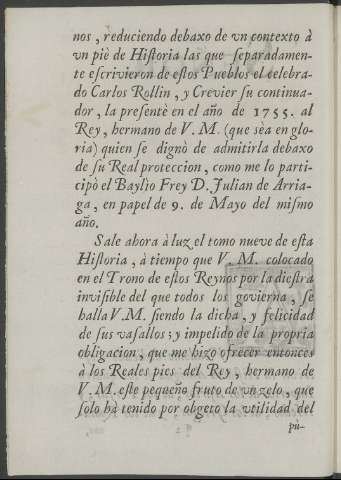 nos, reduciendo debaxo de vn contexto à
vn piè de Historia las que separadamen-
te escrivieron de estos Pueblos el celebra-
do Carlos Rollin, y Crevier su continua-
dor, la presentè en el año de 1755. al
Rey, hermano de V. M. (que sèa en glo-
ria) quien se dignò de admitirla debaxo
de su Real proteccion, como me lo parti-
cipò el Baylìo Frey D. Julian de Arria-
ga, en papel de 9. de Mayo del mismo
año.
Sale ahora à luz el tomo nueve de esta
Historia, à tiempo que V. M. colocado
en el Trono de estos Reynos por la diestra
invisible del que todos los govierna, se
halla V. M. siendo la dicha, y felicidad
de sus vasallos; y impelido de la propria
obligacion, que me hizo ofrecer entonces
à los Reales pies del Rey, hermano de
V. M. este pequeño fruto de vn zelo, que
solo hà tenido por obgeto la vtilidad del
pu-